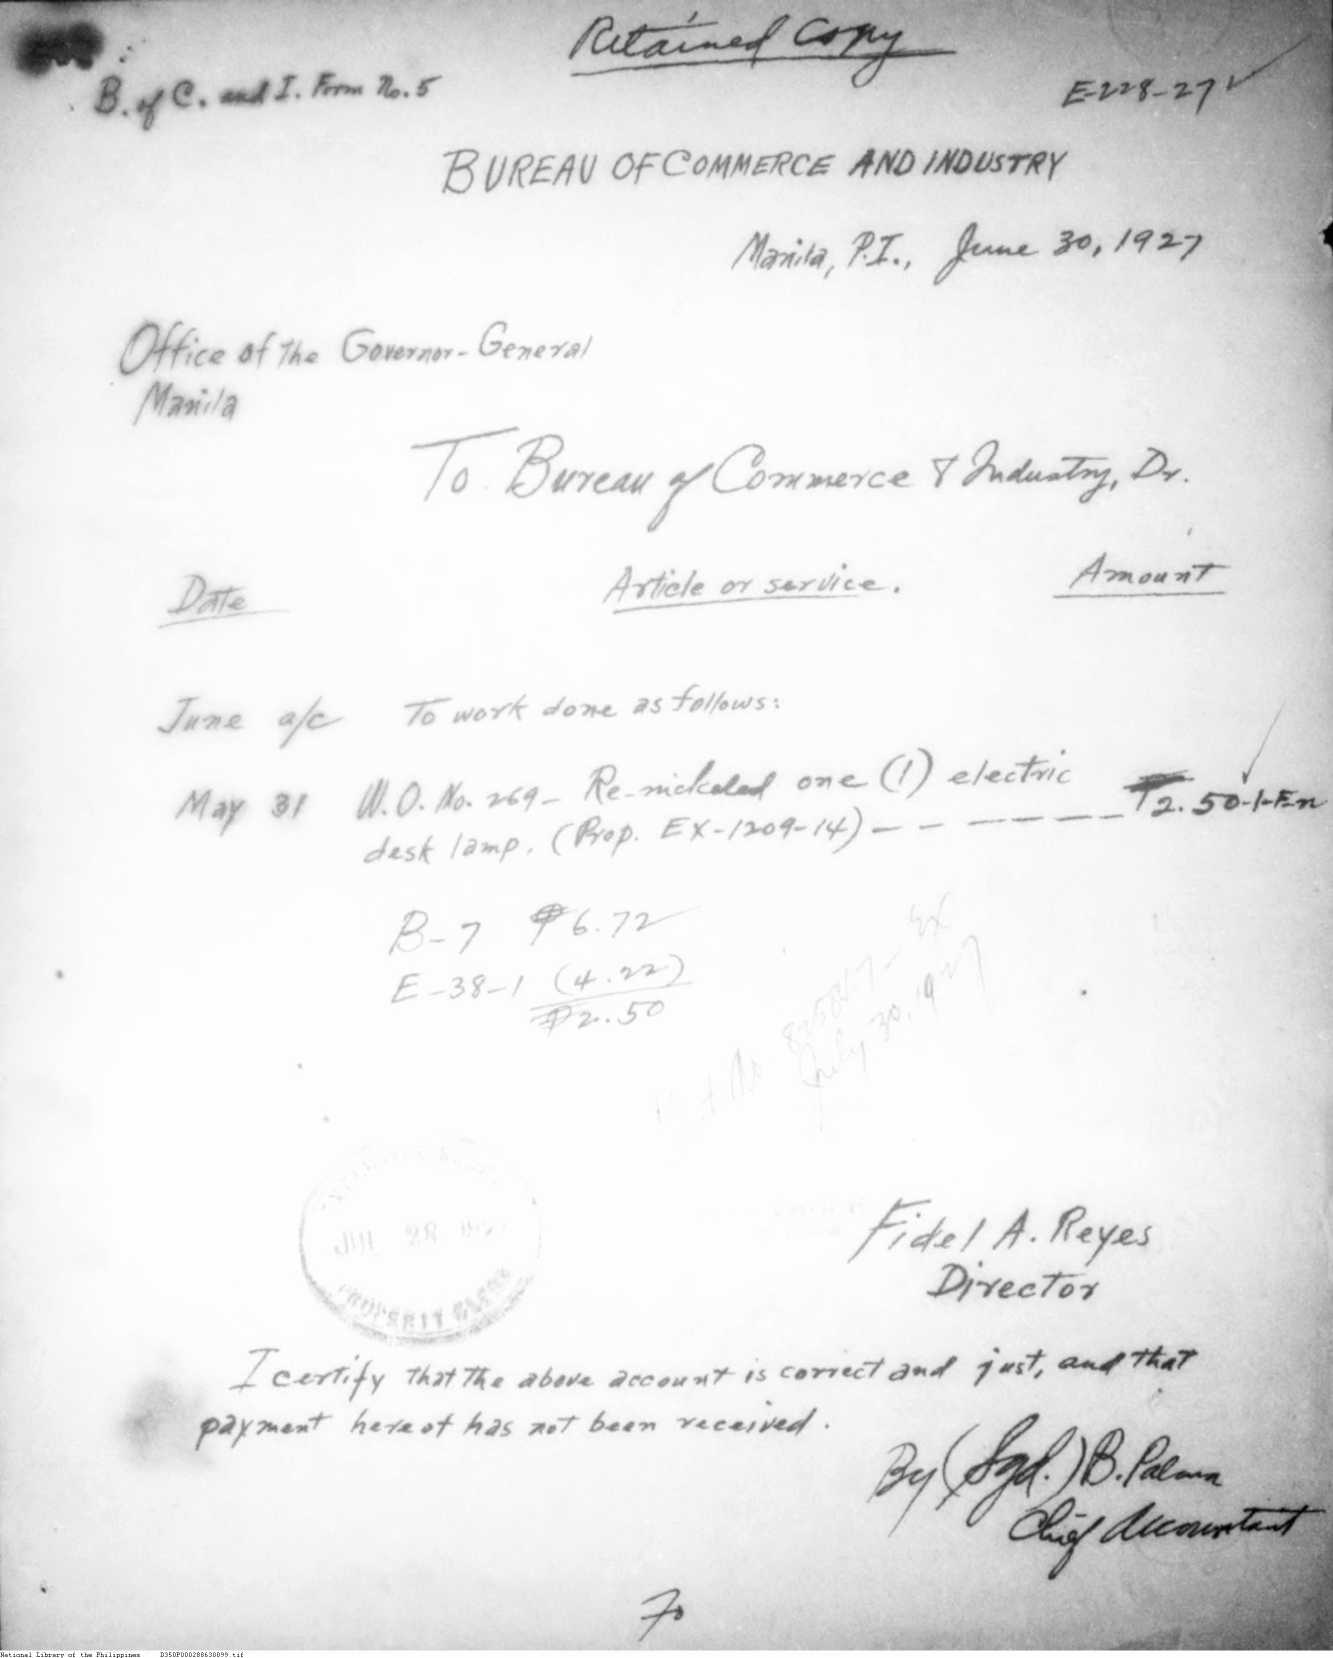 Retained Copy
B. of C. and I. Form No. 5
E-228-27
BUREAU OF COMMERCE AND INDUSTRY
Manila, P.I., June 30, 1927
Office of the Governor-General
Manila
To Bureau of Commerce & Industry, Dr.
Date Article or service. Amount
June a/c To work done as follows:
May 31 W.O. No. 269- Re-nickeled one (1) electric
desk lamp. (Prop. EX-1209-14) ₱2.50-1-F-n
B-7 ₱6.72
E-38-1 (4.22)
₱2.50
July 30, 1927
JUL 28
PROPERTY CLERK
Fidel A. Reyes
Director
I certify that the above account is correct and just, and that
payment hereof has not been received.
By (Sgd.) B. Palma
Chief Accountant
70
National Library of the Philippines D350P000288630899.tif